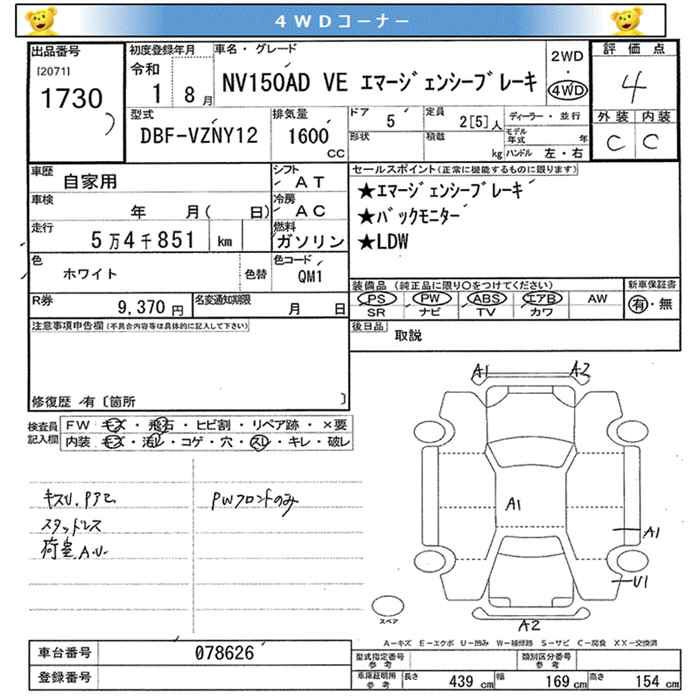 4WDコーナー
出品番号
[2071]
1730
初度登録年月
令和
1 8月
車名・グレード
NV150AD VE エマージェンシーブレーキ
2WD
・
4WD
評価点
4
外装 内装
C C
型式
DBF-VZNY12
排気量
1600
CC
ドア
5
定員
2[5]人
形状
積載
kg
ディーラー・並行
モデル年式 年
ハンドル 左・右
車歴
自家用
車検
年 月( 日)
走行
5万4千851 km
色
ホワイト
色替
シフト
AT
冷房
AC
燃料
ガソリン
色コード
QM1
セールスポイント(正常に機能するものに限ります)
★エマージェンシーブレーキ
★バックモニター
★LDW
装備品 (純正品に限り〇をつけてください)
PS PW ABS エアB AW
SR ナビ TV カワ
新車保証書
有・無
R券
9,370円
名変通知期限
月 日
後日品
取説
注意事項申告欄(不具合内容等は具体的に記入して下さい)
修復歴 有〔箇所 〕
検査員
記入欄
FW キズ・飛石・ヒビ割・リペア跡・×要
内装 キズ・汚レ・コゲ・穴・スレ・キレ・破レ
キズU.PアE
スタッドレス
荷室A.U.
PWフロントのみ
A1 A2
A1
A1
U1
A2
スペア
A-キズ E-エクボ U-凹み W-補修跡 S-サビ C-腐食 XX-交換済
車台番号
078626
登録番号
型式指定番号
参考
類別区分番号
参考
車庫証明所
参考
長さ 439 cm 幅 169 cm 高さ 154 cm